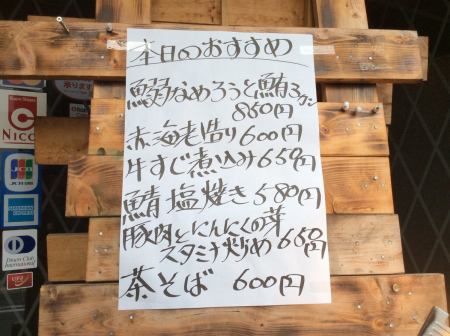 本日のおすすめ
鰯なめろうと鮪ユッケ
850円
赤海老造り600円
牛すじ煮込み650円
鯖塩焼き580円
豚肉とにんにくの芽
スタミナ炒め650円
茶そば 600円
NICO
JCB
AMERICAN EXPRESS
Diners Club
International